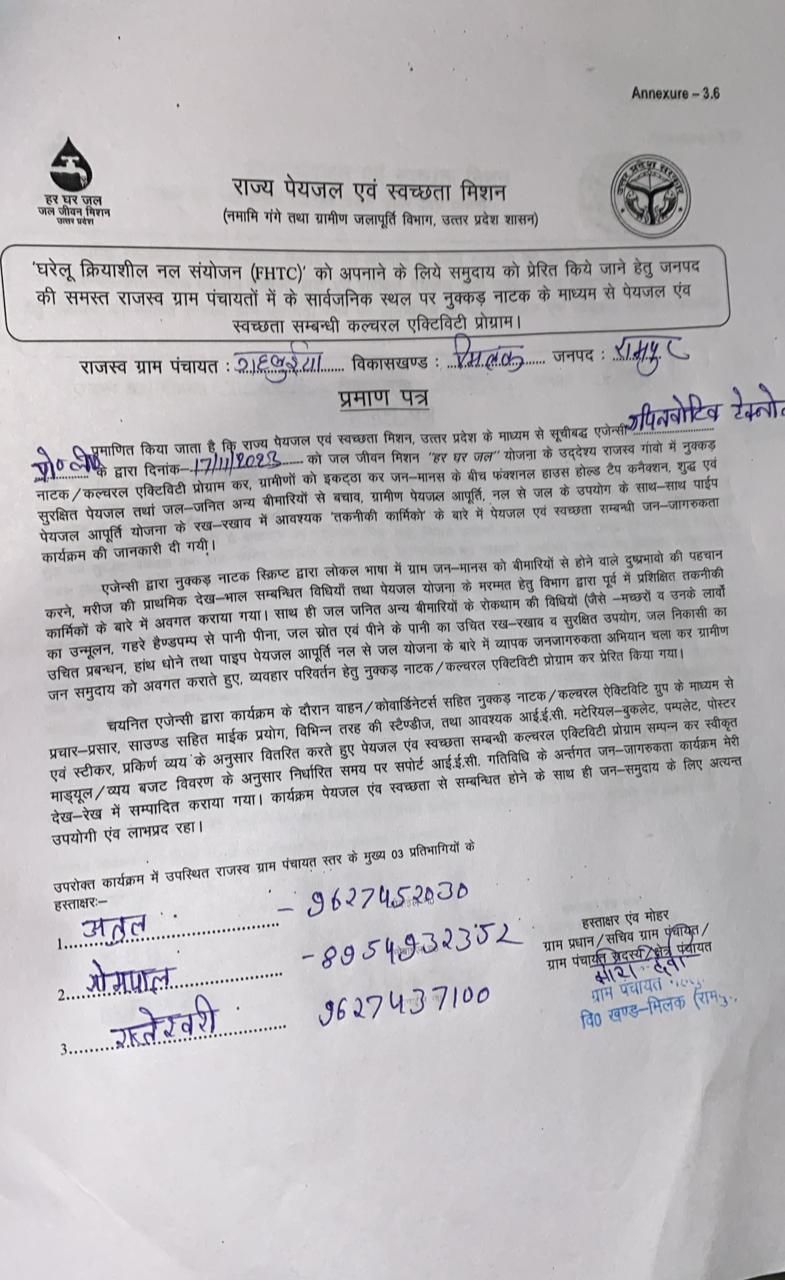 Annexure – 3.6
हर घर जल
जल जीवन मिशन
उत्तर प्रदेश
राज्य पेयजल एवं स्वच्छता मिशन
(नमामि गंगे तथा ग्रामीण जलापूर्ति विभाग, उत्तर प्रदेश शासन)
उत्तर प्रदेश सरकार
'घरेलू क्रियाशील नल संयोजन (FHTC)' को अपनाने के लिये समुदाय को प्रेरित किये जाने हेतु जनपद
की समस्त राजस्व ग्राम पंचायतों में के सार्वजनिक स्थल पर नुक्कड़ नाटक के माध्यम से पेयजल एंव
स्वच्छता सम्बन्धी कल्चरल एक्टिविटी प्रोग्राम।
राजस्व ग्राम पंचायत : ............ विकासखण्ड : ...मिलक...... जनपद : .रामपुर
प्रमाण पत्र
प्रमाणित किया जाता है कि राज्य पेयजल एवं स्वच्छता मिशन, उत्तर प्रदेश के माध्यम से सूचीबद्ध एजेन्सी टेक्नो
प्रो० ली० के द्वारा दिनांक–17/11/2023..... को जल जीवन मिशन "हर घर जल" योजना के उद्देश्य राजस्व गांवो में नुक्कड़
नाटक/कल्चरल एक्टिविटी प्रोग्राम कर, ग्रामीणों को इकट्ठा कर जन–मानस के बीच फंक्शनल हाउस होल्ड टैप कनैक्शन, शुद्ध एवं
सुरक्षित पेयजल तथा जल–जनित अन्य बीमारियों से बचाव, ग्रामीण पेयजल आपूर्ति, नल से जल के उपयोग के साथ–साथ पाईप
पेयजल आपूर्ति योजना के रख–रखाव में आवश्यक 'तकनीकी कार्मिको' के बारे में पेयजल एवं स्वच्छता सम्बन्धी जन–जागरुकता
कार्यक्रम की जानकारी दी गयी।
एजेन्सी द्वारा नुक्कड़ नाटक स्क्रिप्ट द्वारा लोकल भाषा में ग्राम जन–मानस को बीमारियों से होने वाले दुष्प्रभावो की पहचान
करने, मरीज की प्राथमिक देख–भाल सम्बन्धित विधियाँ तथा पेयजल योजना के मरम्मत हेतु विभाग द्वारा पूर्व में प्रशिक्षित तकनीकी
कार्मिकों के बारे में अवगत कराया गया। साथ ही जल जनित अन्य बीमारियों के रोकथाम की विधियों (जैसे –मच्छरों व उनके लार्वो
का उन्मूलन, गहरे हैण्डपम्प से पानी पीना, जल स्रोत एवं पीने के पानी का उचित रख–रखाव व सुरक्षित उपयोग, जल निकासी का
उचित प्रबन्धन, हांथ धोने तथा पाइप पेयजल आपूर्ति नल से जल योजना के बारे में व्यापक जनजागरुकता अभियान चला कर ग्रामीण
जन समुदाय को अवगत कराते हुए, व्यवहार परिवर्तन हेतु नुक्कड़ नाटक/कल्चरल एक्टिविटी प्रोग्राम कर प्रेरित किया गया।
चयनित एजेन्सी द्वारा कार्यक्रम के दौरान वाहन/कोवार्डिनेटर्स सहित नुक्कड़ नाटक/कल्चरल ऐक्टिविटि ग्रुप के माध्यम से
प्रचार–प्रसार, साउण्ड सहित माईक प्रयोग, विभिन्न तरह की स्टैण्डीज, तथा आवश्यक आई.ई.सी. मटेरियल–बुकलेट, पम्पलेट, पोस्टर
एवं स्टीकर, प्रकिर्ण व्यय के अनुसार वितरित करते हुए पेयजल एंव स्वच्छता सम्बन्धी कल्चरल एक्टिविटी प्रोग्राम सम्पन्न कर स्वीकृत
माड्यूल/व्यय बजट विवरण के अनुसार निर्धारित समय पर सपोर्ट आई.ई.सी. गतिविधि के अर्न्तगत जन–जागरुकता कार्यक्रम मेरी
देख–रेख में सम्पादित कराया गया। कार्यक्रम पेयजल एंव स्वच्छता से सम्बन्धित होने के साथ ही जन–समुदाय के लिए अत्यन्त
उपयोगी एंव लाभप्रद रहा।
उपरोक्त कार्यक्रम में उपस्थित राजस्व ग्राम पंचायत स्तर के मुख्य 03 प्रतिभागियों के
हस्ताक्षरः–
1....अतुल........................ – 9627452030
2................................ – 8954932352
3................................ 9627437100
हस्ताक्षर एंव मोहर
ग्राम प्रधान/सचिव ग्राम पंचायत/
ग्राम पंचायत सदस्य/क्षेत्र पंचायत
देवी
ग्राम पंचायत
वि0 खण्ड–मिलक